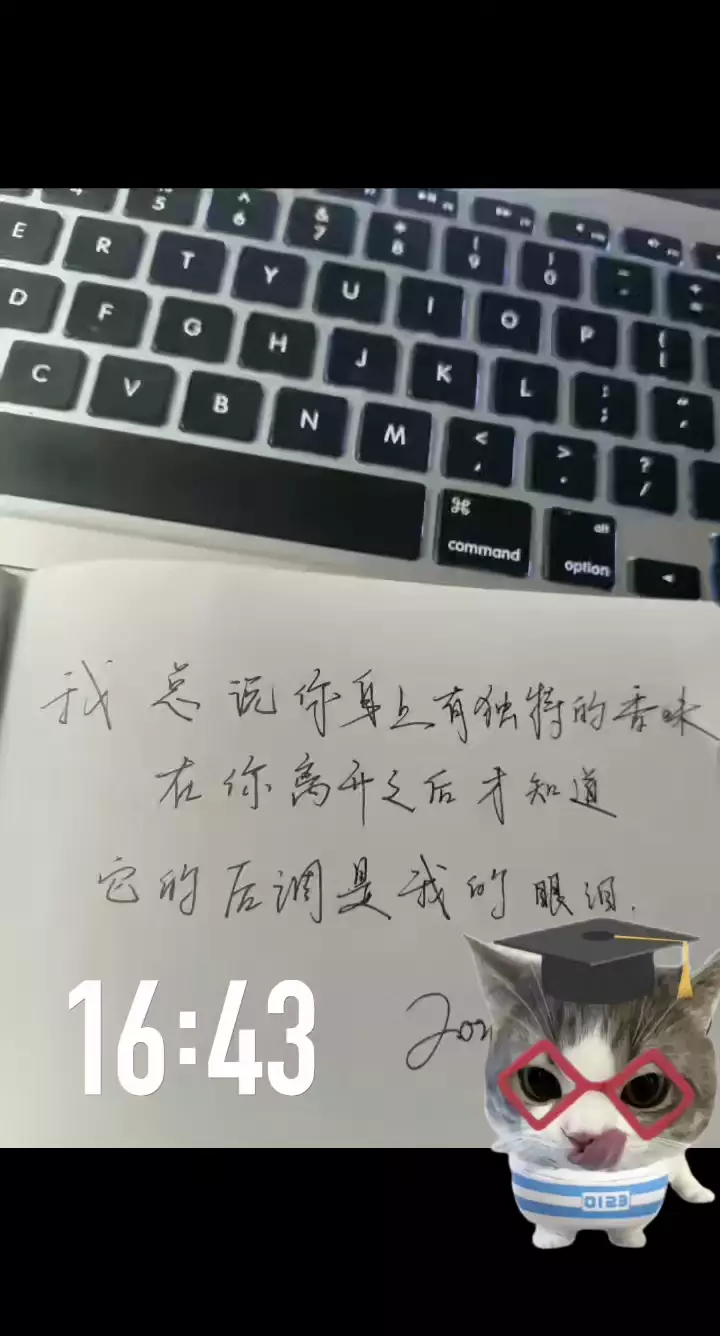 5 ^ 6 & 7 * 8 ( 9 ) 0 - + =
E R T Y U I O P { [
D F G H J K L : ; " '
C V B N M < , > . ? /
⌘ command alt option ◄
我总说你身上有独特的香味
在你离开之后才知道
它的后调是我的眼泪.
16:43
0123